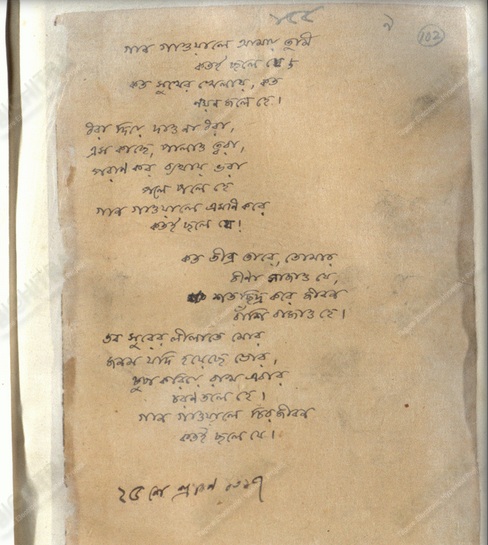 ১৫৫
১
102
গান গাওয়ালে আমায় তুমি
কতই ছলে যে,
কত সুখের খেলায়, কত
নয়ন জলে হে।
ধরা দিয়ে দাও না ধরা,
এস কাছে, পালাও ত্বরা,
পরান কর ব্যথায় ভরা
পলে পলে হে
গান গাওয়ালে এমনি করে
কতই ছলে যে!
কত তীব্র তারে, তোমার
বীণা সাজাও যে,
শতছিদ্র করে জীবন
বাঁশি বাজাও হে।
তব সুরের লীলাতে মোর
জনম যদি হয়েছে ভোর,
চুপ করিয়ে রাখ এবার
চরণ তলে হে।
গান গাওয়ালে চিরজীবন
কতই ছলে যে।
২৫শে শ্রাবণ ১৩১৭